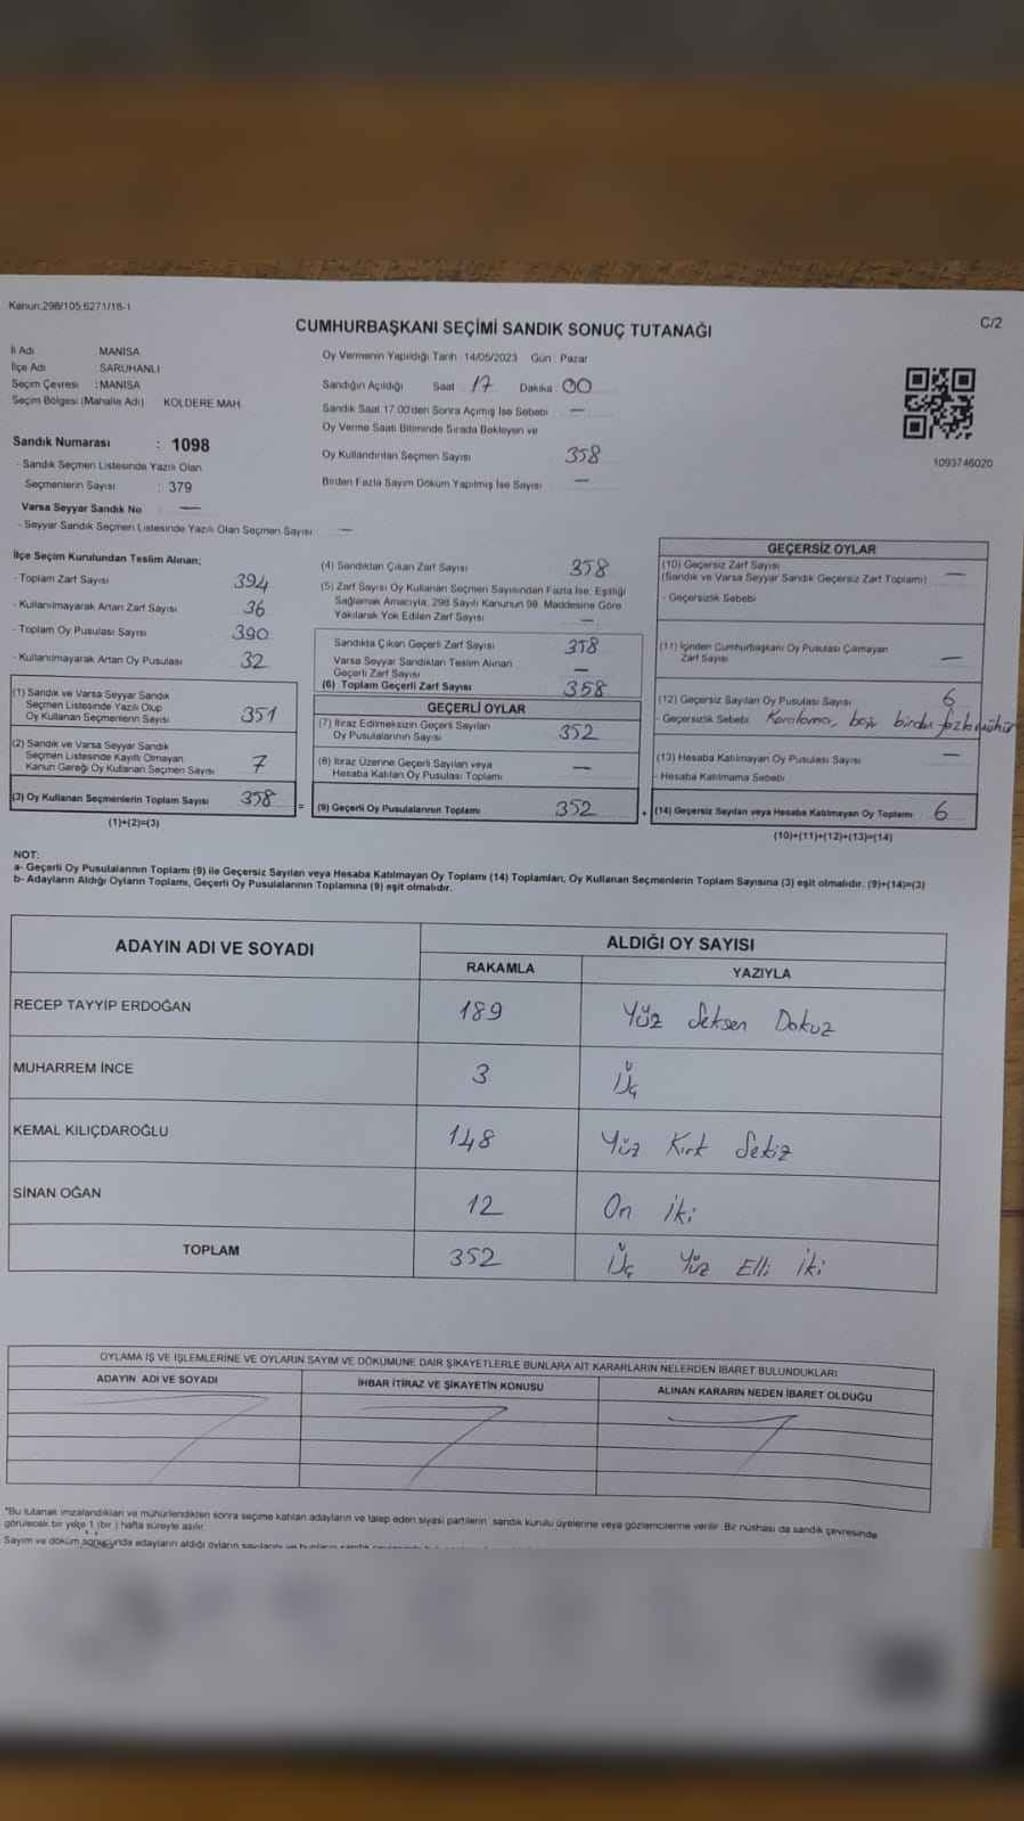 Kanun:298/105 6271/18-1
C/2
CUMHURBAŞKANI SEÇİMİ SANDIK SONUÇ TUTANAĞI
İl Adı MANİSA
İlçe Adı SARUHANLI
Seçim Çevresi : MANİSA
Seçim Bölgesi (Mahalle Adı) KOLDERE MAH.
Sandık Numarası : 1098
- Sandık Seçmen Listesinde Yazılı Olan
Seçmenlerin Sayısı : 379
Varsa Seyyar Sandık No —
- Seyyar Sandık Seçmen Listesinde Yazılı Olan Seçmen Sayısı : —
Oy Vermenin Yapıldığı Tarih : 14/05/2023 Gün : Pazar
Sandığın Açıldığı Saat : 17 Dakika : 00
Sandık Saat 17.00'den Sonra Açılmış İse Sebebi —
Oy Verme Saati Bitiminde Sırada Bekleyen ve
Oy Kullandırılan Seçmen Sayısı 358
Birden Fazla Sayım Döküm Yapılmış İse Sayısı —
1093746020
İlçe Seçim Kurulundan Teslim Alınan;
- Toplam Zarf Sayısı 394
- Kullanılmayarak Artan Zarf Sayısı 36
- Toplam Oy Pusulası Sayısı 390
- Kullanılmayarak Artan Oy Pusulası 32
(1) Sandık ve Varsa Seyyar Sandık
Seçmen Listesinde Yazılı Olup
Oy Kullanan Seçmenlerin Sayısı 351
(2) Sandık ve Varsa Seyyar Sandık
Seçmen Listesinde Kayıtlı Olmayan
Kanun Gereği Oy Kullanan Seçmen Sayısı 7
(3) Oy Kullanan Seçmenlerin Toplam Sayısı 358
(1)+(2)=(3)
(4) Sandıktan Çıkan Zarf Sayısı 358
(5) Zarf Sayısı Oy Kullanan Seçmen Sayısından Fazla İse, Eşitliği
Sağlamak Amacıyla, 298 Sayılı Kanunun 98. Maddesine Göre
Yakılarak Yok Edilen Zarf Sayısı —
Sandıkta Çıkan Geçerli Zarf Sayısı 358
Varsa Seyyar Sandıktan Teslim Alınan
Geçerli Zarf Sayısı —
(6) Toplam Geçerli Zarf Sayısı 358
GEÇERLİ OYLAR
(7) İtiraz Edilmeksizin Geçerli Sayılan
Oy Pusulalarının Sayısı 352
(8) İtiraz Üzerine Geçerli Sayılan veya
Hesaba Katılan Oy Pusulası Toplamı —
= (9) Geçerli Oy Pusulalarının Toplamı 352
GEÇERSİZ OYLAR
(10) Geçersiz Zarf Sayısı
(Sandık ve Varsa Seyyar Sandık Geçersiz Zarf Toplamı) —
- Geçersizlik Sebebi
(11) İçinden Cumhurbaşkanı Oy Pusulası Çıkmayan
Zarf Sayısı —
(12) Geçersiz Sayılan Oy Pusulası Sayısı 6
- Geçersizlik Sebebi Karalama, boş, birden fazla mühür
(13) Hesaba Katılmayan Oy Pusulası Sayısı —
- Hesaba Katılmama Sebebi
+ (14) Geçersiz Sayılan veya Hesaba Katılmayan Oy Toplamı 6
(10)+(11)+(12)+(13)=(14)
NOT:
a- Geçerli Oy Pusulalarının Toplamı (9) ile Geçersiz Sayılan veya Hesaba Katılmayan Oy Toplamı (14) Toplamları, Oy Kullanan Seçmenlerin Toplam Sayısına (3) eşit olmalıdır. (9)+(14)=(3)
b- Adayların Aldığı Oyların Toplamı, Geçerli Oy Pusulalarının Toplamına (9) eşit olmalıdır.
ADAYIN ADI VE SOYADI
ALDIĞI OY SAYISI
RAKAMLA YAZIYLA
RECEP TAYYİP ERDOĞAN 189 Yüz Seksen Dokuz
MUHARREM İNCE 3 Üç
KEMAL KILIÇDAROĞLU 148 Yüz Kırk Sekiz
SİNAN OĞAN 12 On İki
TOPLAM 352 Üç Yüz Elli İki
OYLAMA İŞ VE İŞLEMLERİNE VE OYLARIN SAYIM VE DÖKÜMÜNE DAİR ŞİKAYETLERLE BUNLARA AİT KARARLARIN NELERDEN İBARET BULUNDUKLARI
ADAYIN ADI VE SOYADI İHBAR İTİRAZ VE ŞİKAYETİN KONUSU ALINAN KARARIN NEDEN İBARET OLDUĞU
*Bu tutanak imzalandıktan ve mühürlendikten sonra seçime katılan adayların ve talep eden siyasi partilerin sandık kurulu üyelerine veya gözlemcilerine verilir. Bir nüshası da sandık çevresinde
görülecek bir yere 1 (bir) hafta süreyle asılır.
Sayım ve döküm sonucunda adayların aldığı oyların sayılarını ve bunların